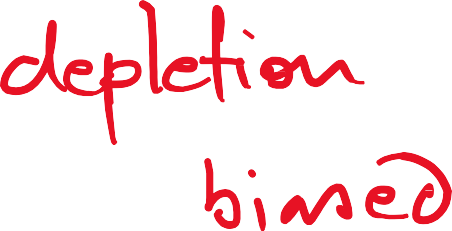 depletion
biased